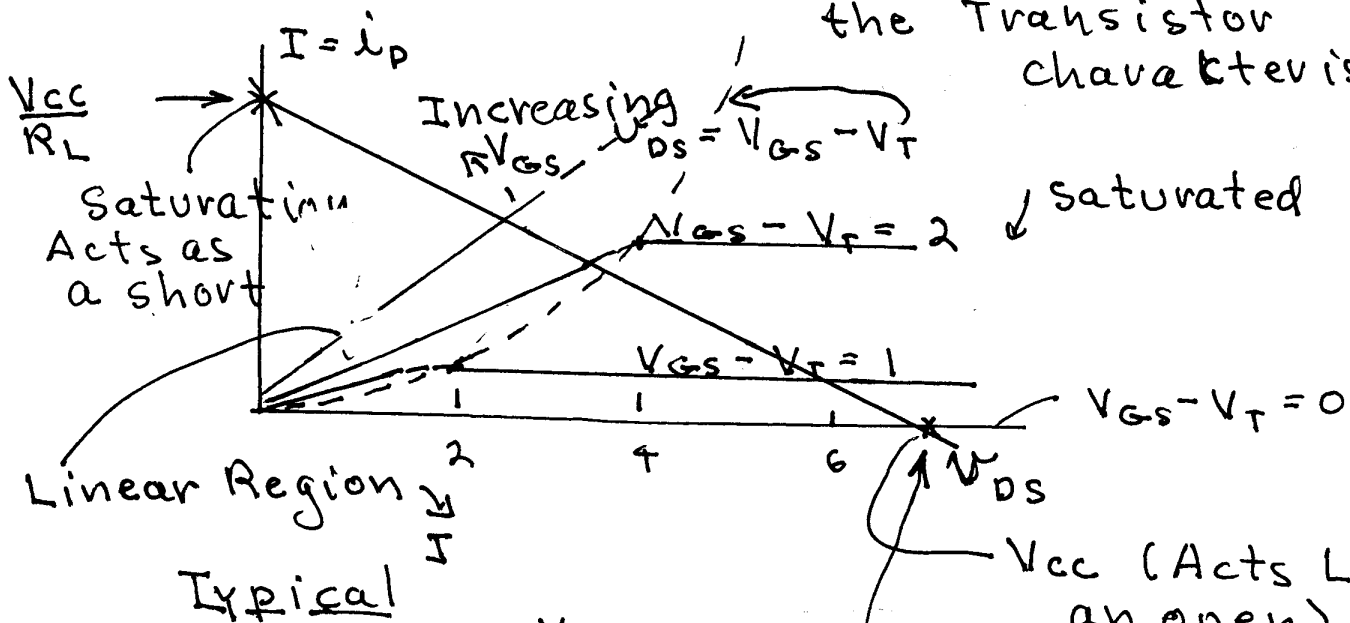 the Transistor
charakteris
I = i_D
Vcc
R_L
Increasing
V_GS
v_DS = V_GS - V_T
Saturation
Acts as
a short
V_GS - V_T = 2
saturated
V_GS - V_T = 1
V_GS - V_T = 0
2 4 6
v_DS
Linear Region
I
Typical
Vcc (Acts L
an open)